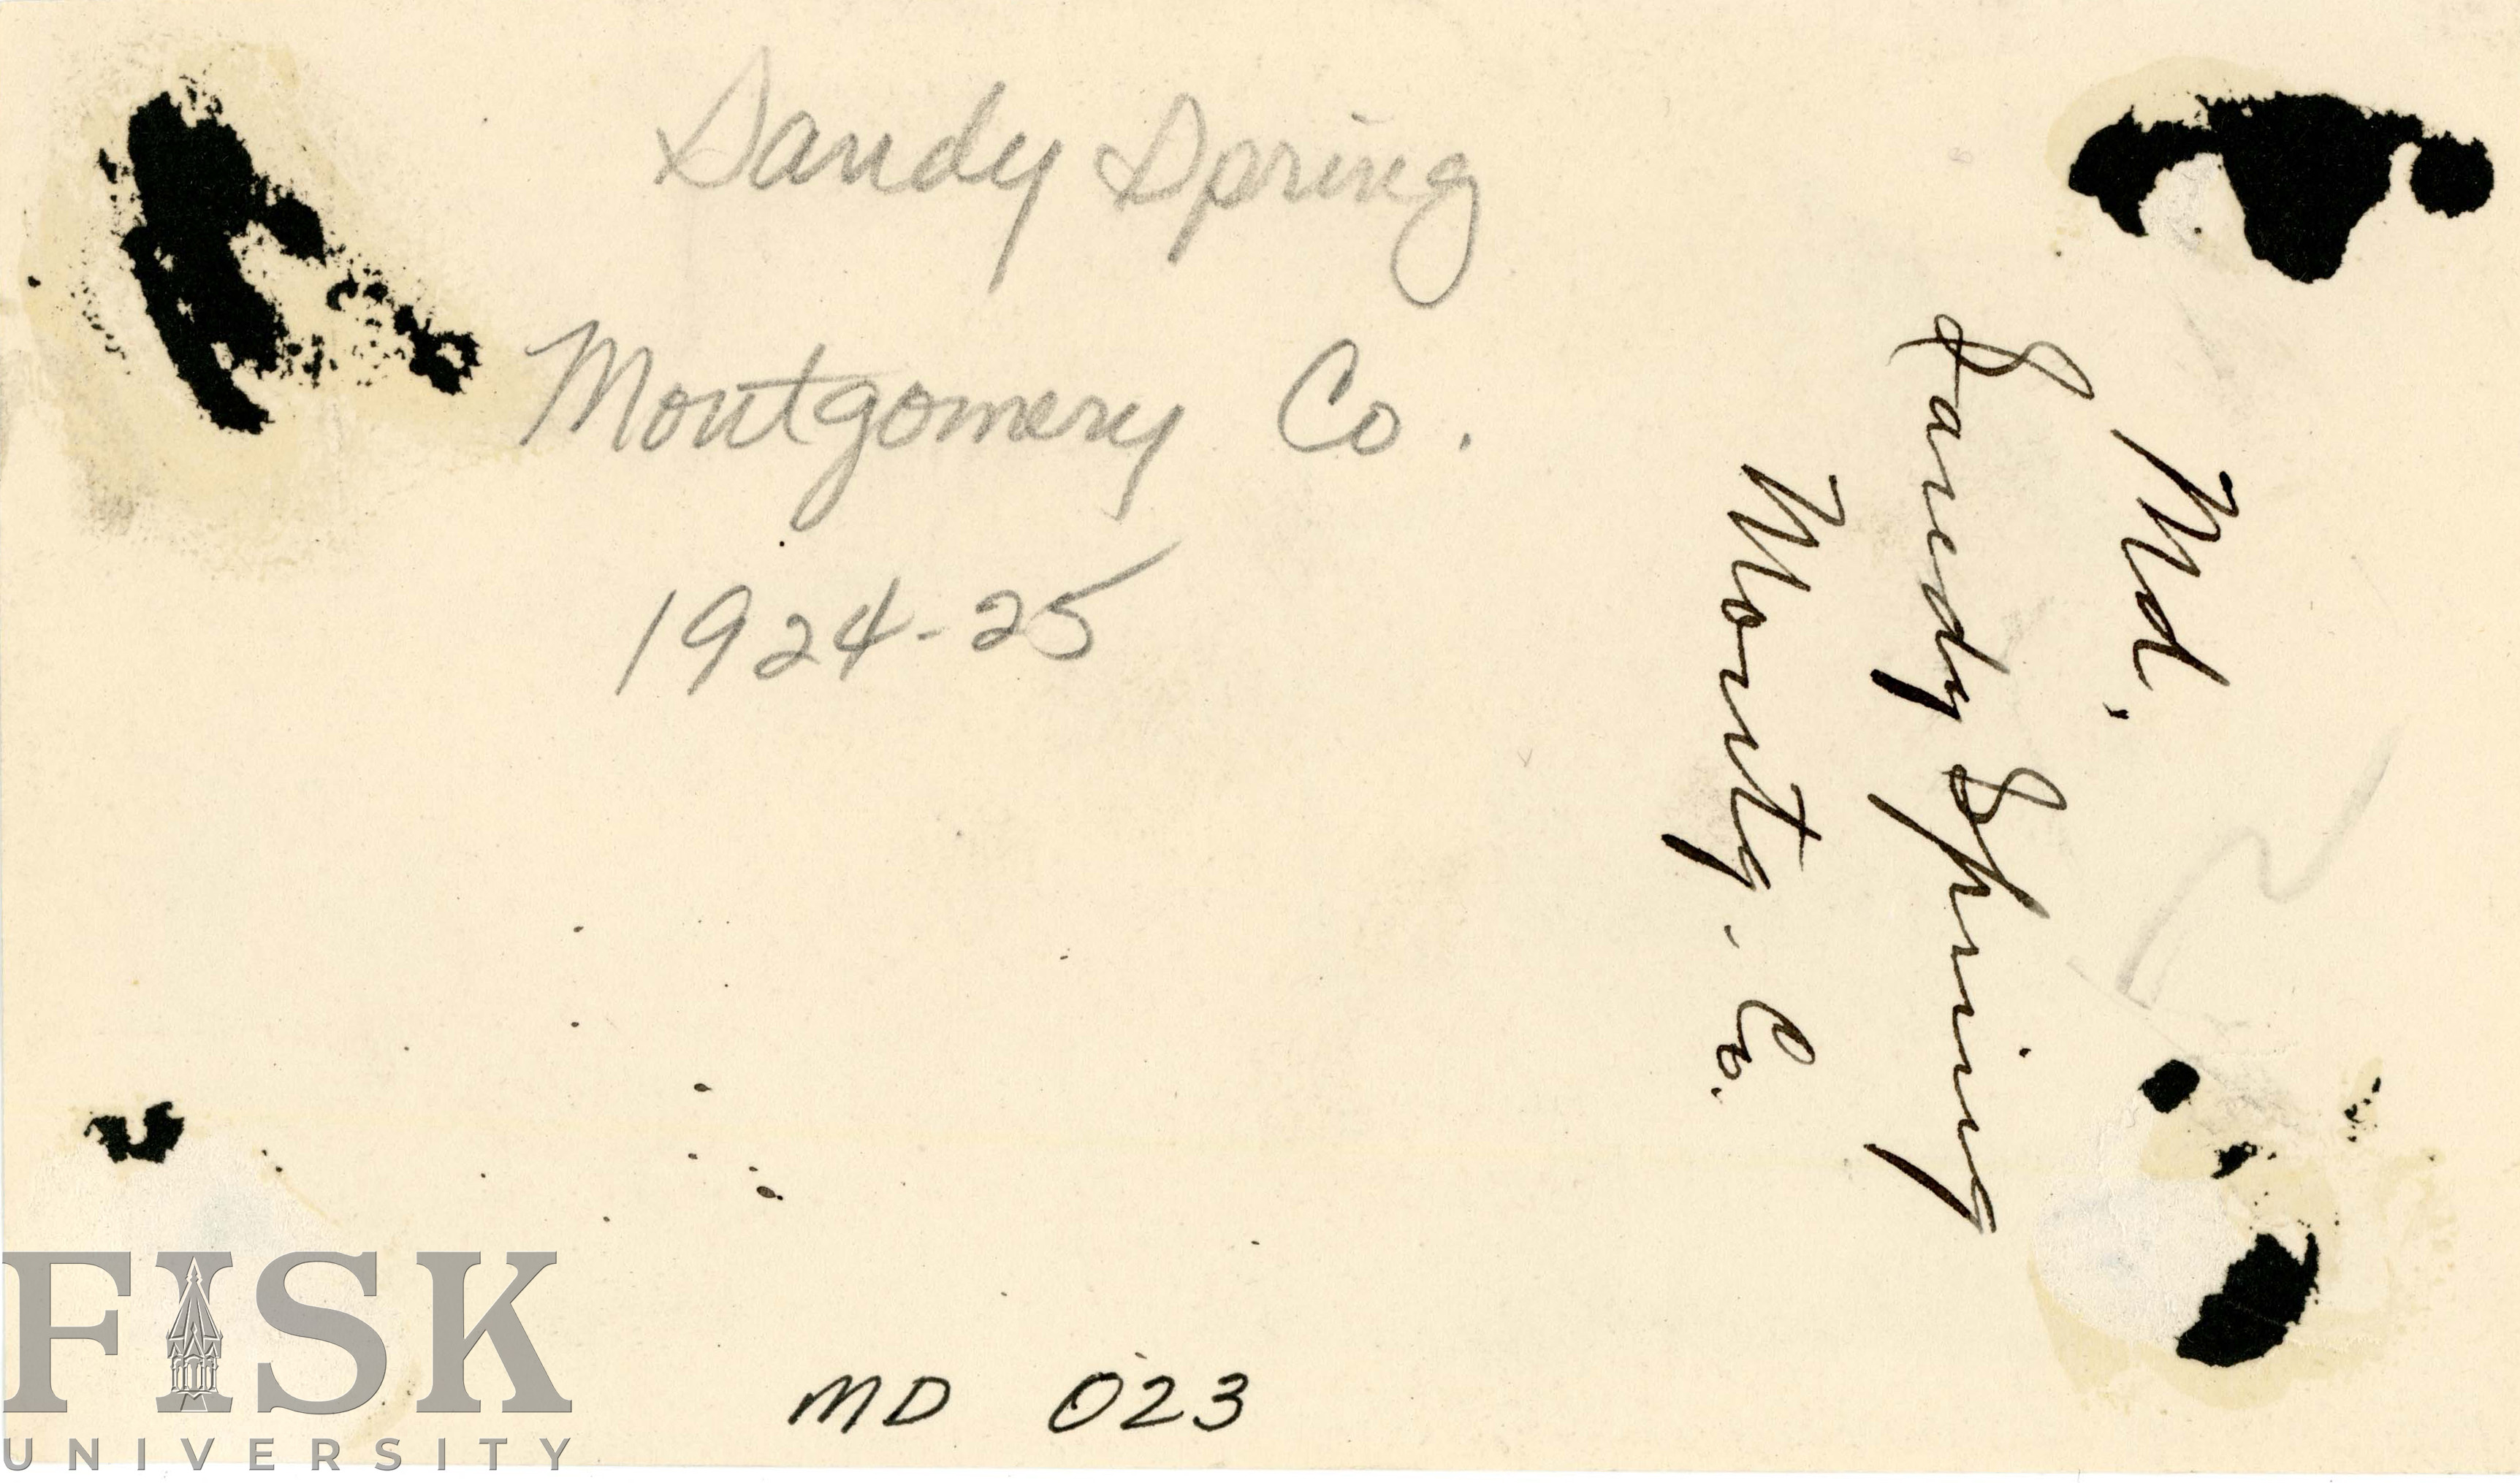 Sandy Spring
Montgomery Co.
1924-25
Md.
Sandy Spring
Montg. Co.
MD 023
FISK
UNIVERSITY